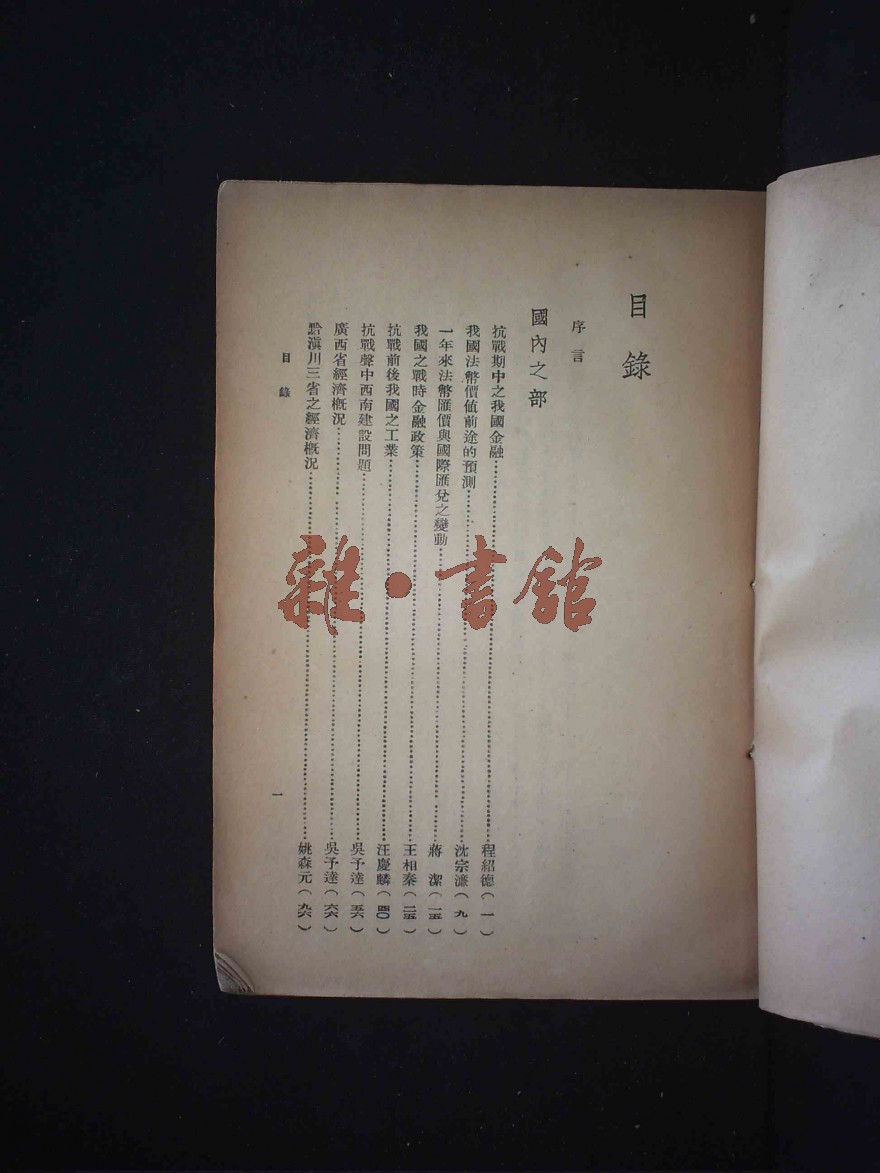 目錄
序言
國內之部
抗戰期中之我國金融……程紹德(一)
我國法幣價值前途的預測……沈宗濂(九)
一年來法幣匯價與國際匯兌之變動……蔣 潔(一五)
我國之戰時金融政策……王相秦(二五)
抗戰前後我國之工業……汪慶麟(四〇)
抗戰聲中西南建設問題……吳予達(五六)
廣西省經濟概況……吳予達(六六)
黔滇川三省之經濟概況……姚森元(九六)
目錄
一
雜·書館